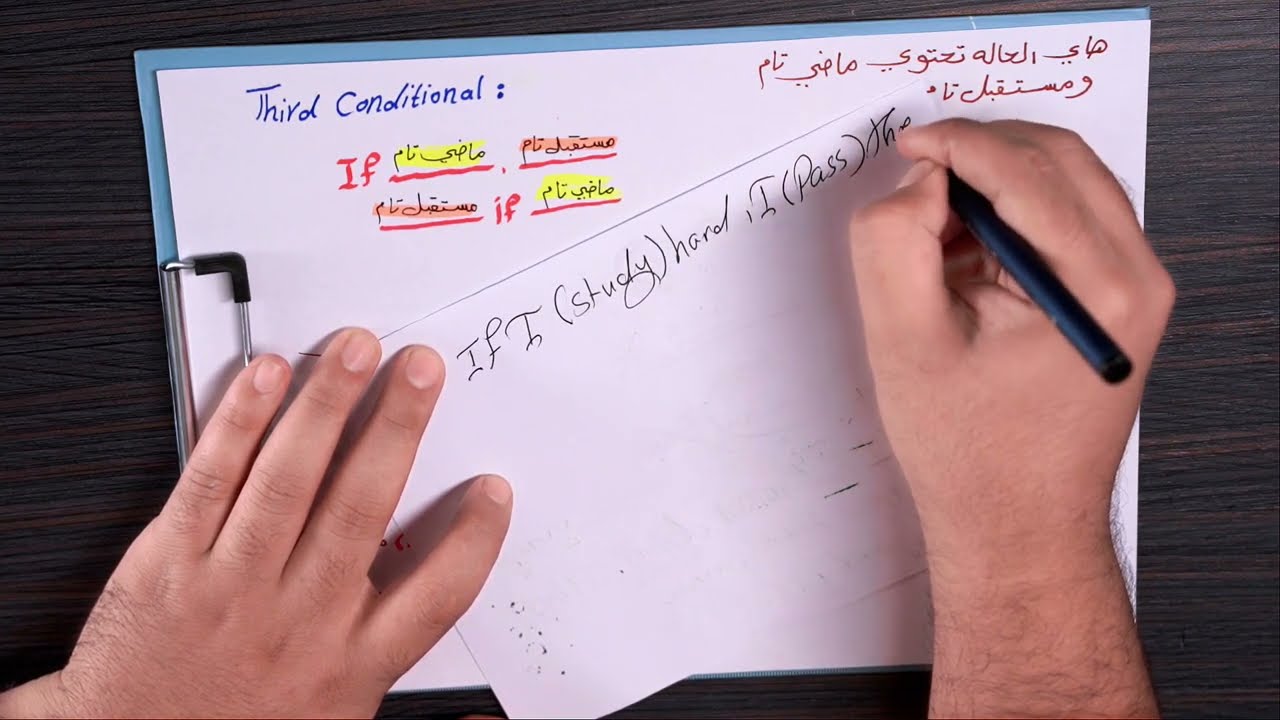 Third Conditional :
هاي الحاله تحتوي ماضي تام
ومستقبل تام
If ماضي تام , مستقبل تام
مستقبل تام if ماضي تام
If I (study) hard , I (Pass) the